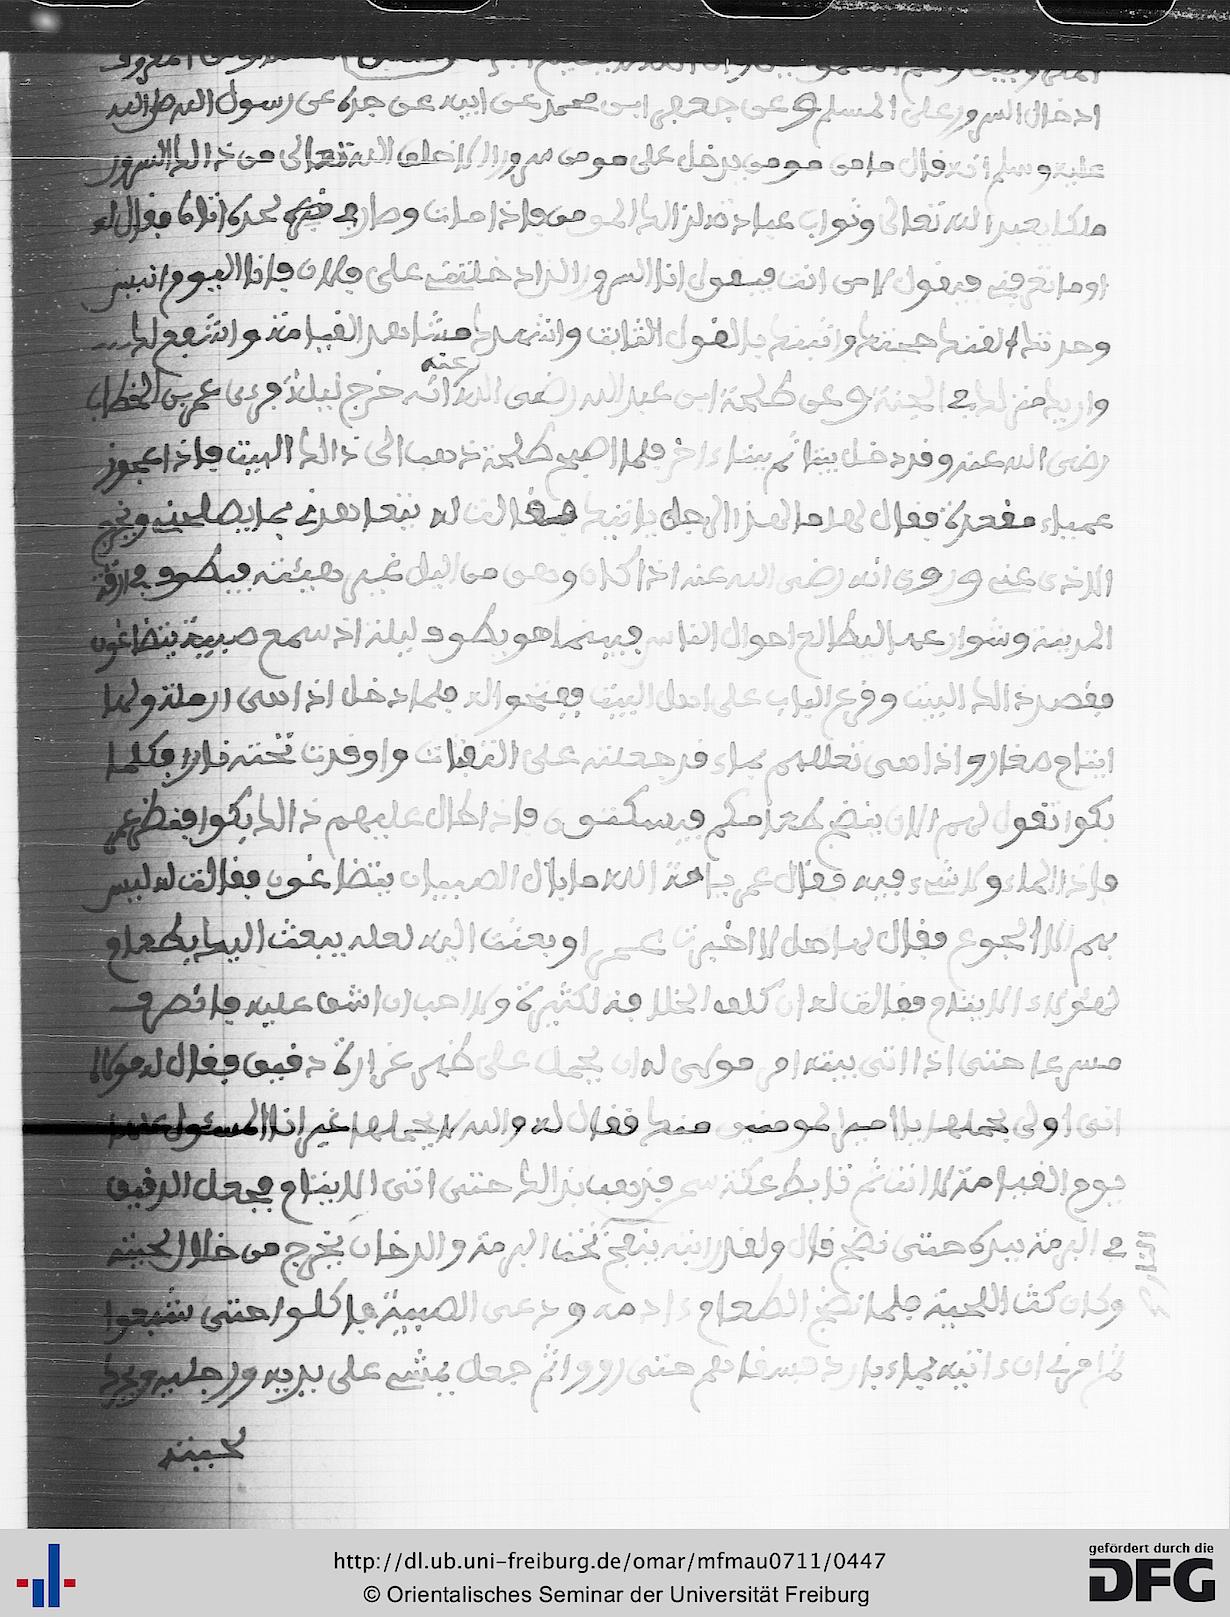 ادخال السرور على المسلم وعن جعفر ابن محمد عن ابيه عن جده عن رسول الله صلى الله
عليه وسلم انه قال ما من مومن يدخل على مومن سرورا الا خلق الله تعالى من ذالك السرور
ملكا يعبد الله تعالى وثواب عبادته لذالك المومن فاذا مات وصار في لحده اتاه فقال له
اوما تعرفني فيقول لا من انت فيقول انا السرور الذي ادخلتني على فلان فانا اليوم انيس
وحدتك القنك حجتك واثبتك بالقول الثابت واشهدك مشاهد القيامة واشفع لك
واريك منزلك في الجنة وعن طلحة ابن عبد الله رضى الله عنه انه خرج ليلة فرءى عمر بن الخطاب
رضى الله عنه وقد دخل بيتا ثم بيتا ءاخر فلما اصبح طلحة ذهب الى ذالك البيت فاذا عجوز
عمياء مقعدة فقال لها ما لهذا الرجل ياتيك فقالت له يتعاهدني بما يصلحني ويخرج
الاذى عني وروى انه رضى الله عنه اذا كان وهن من اليل غير هيئته فيطوف في ازقة
المدينة وشوارعها ليطالع احوال الناس فبينما هو يطوف ليلة اذ سمع صبية يتضاغون
فقصد ذالك البيت وقرع الباب على اهل البيت ففتحوا له فلما دخل اذا هى ارملة ولها
ايتام صغار واذا هى تعللهم بماء قد جعلته على الثفيات واوقدت تحته نارا فكلما
بكوا تقول لهم الان ينضج طعامكم فيسكتون فاذا طال عليهم ذالك بكوا فنظر عمر
فاذا الماء ولا شيء فيه فقال عمر يا امة الله ما بال الصبيان يتضاغون فقالت له ليس
بهم الا الجوع فقال لها هل لا اخبرت عمر او بعثت اليه لعله يبعث اليك بطعام
لهؤلاء الايتام فقالت له ان كلف الخلافة لكثيرة ولا احب ان اشق عليه فانصرف
مسرعا حتى اذا اتى بيته امر مولى له ان يحمل على ظهره غرارة دقيق فقال له مولاه
انى اولى بحملها يا امير المومنين منك فقال له والله لا يحملها غير انا المسئول عنها
يوم القيامة لا انت ثم تابط عكة سمن فذهب بذالك حتى اتى الايتام فجعل الدقيق
في البرمة بيده حتى نضج قال ولقد رايته ينفخ تحت البرمة والدخان يخرج من خلال لحيته
وكان كث اللحية فلما نضج الطعام ءادمه ودعى الصبية فاكلوا حتى شبعوا
ثم امرني ان ءاتيه بماء بارد فسقاهم حتى رووا ثم جعل يمشي على يديه ورجليه ويحرك
لحيته
http://dl.ub.uni-freiburg.de/omar/mfmau0711/0447
© Orientalisches Seminar der Universität Freiburg
gefördert durch die
DFG